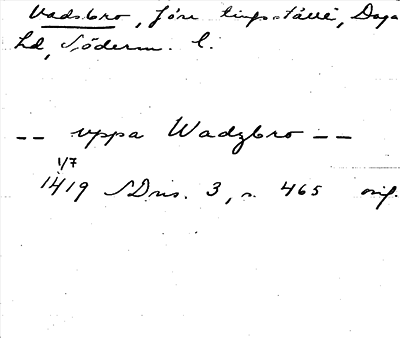 Vadsbro, före tingsställe, Daga
hd, Söderm. l.
-- vppa Wadzbro --
1/7
1419 SDns. 3, s. 465 orig.